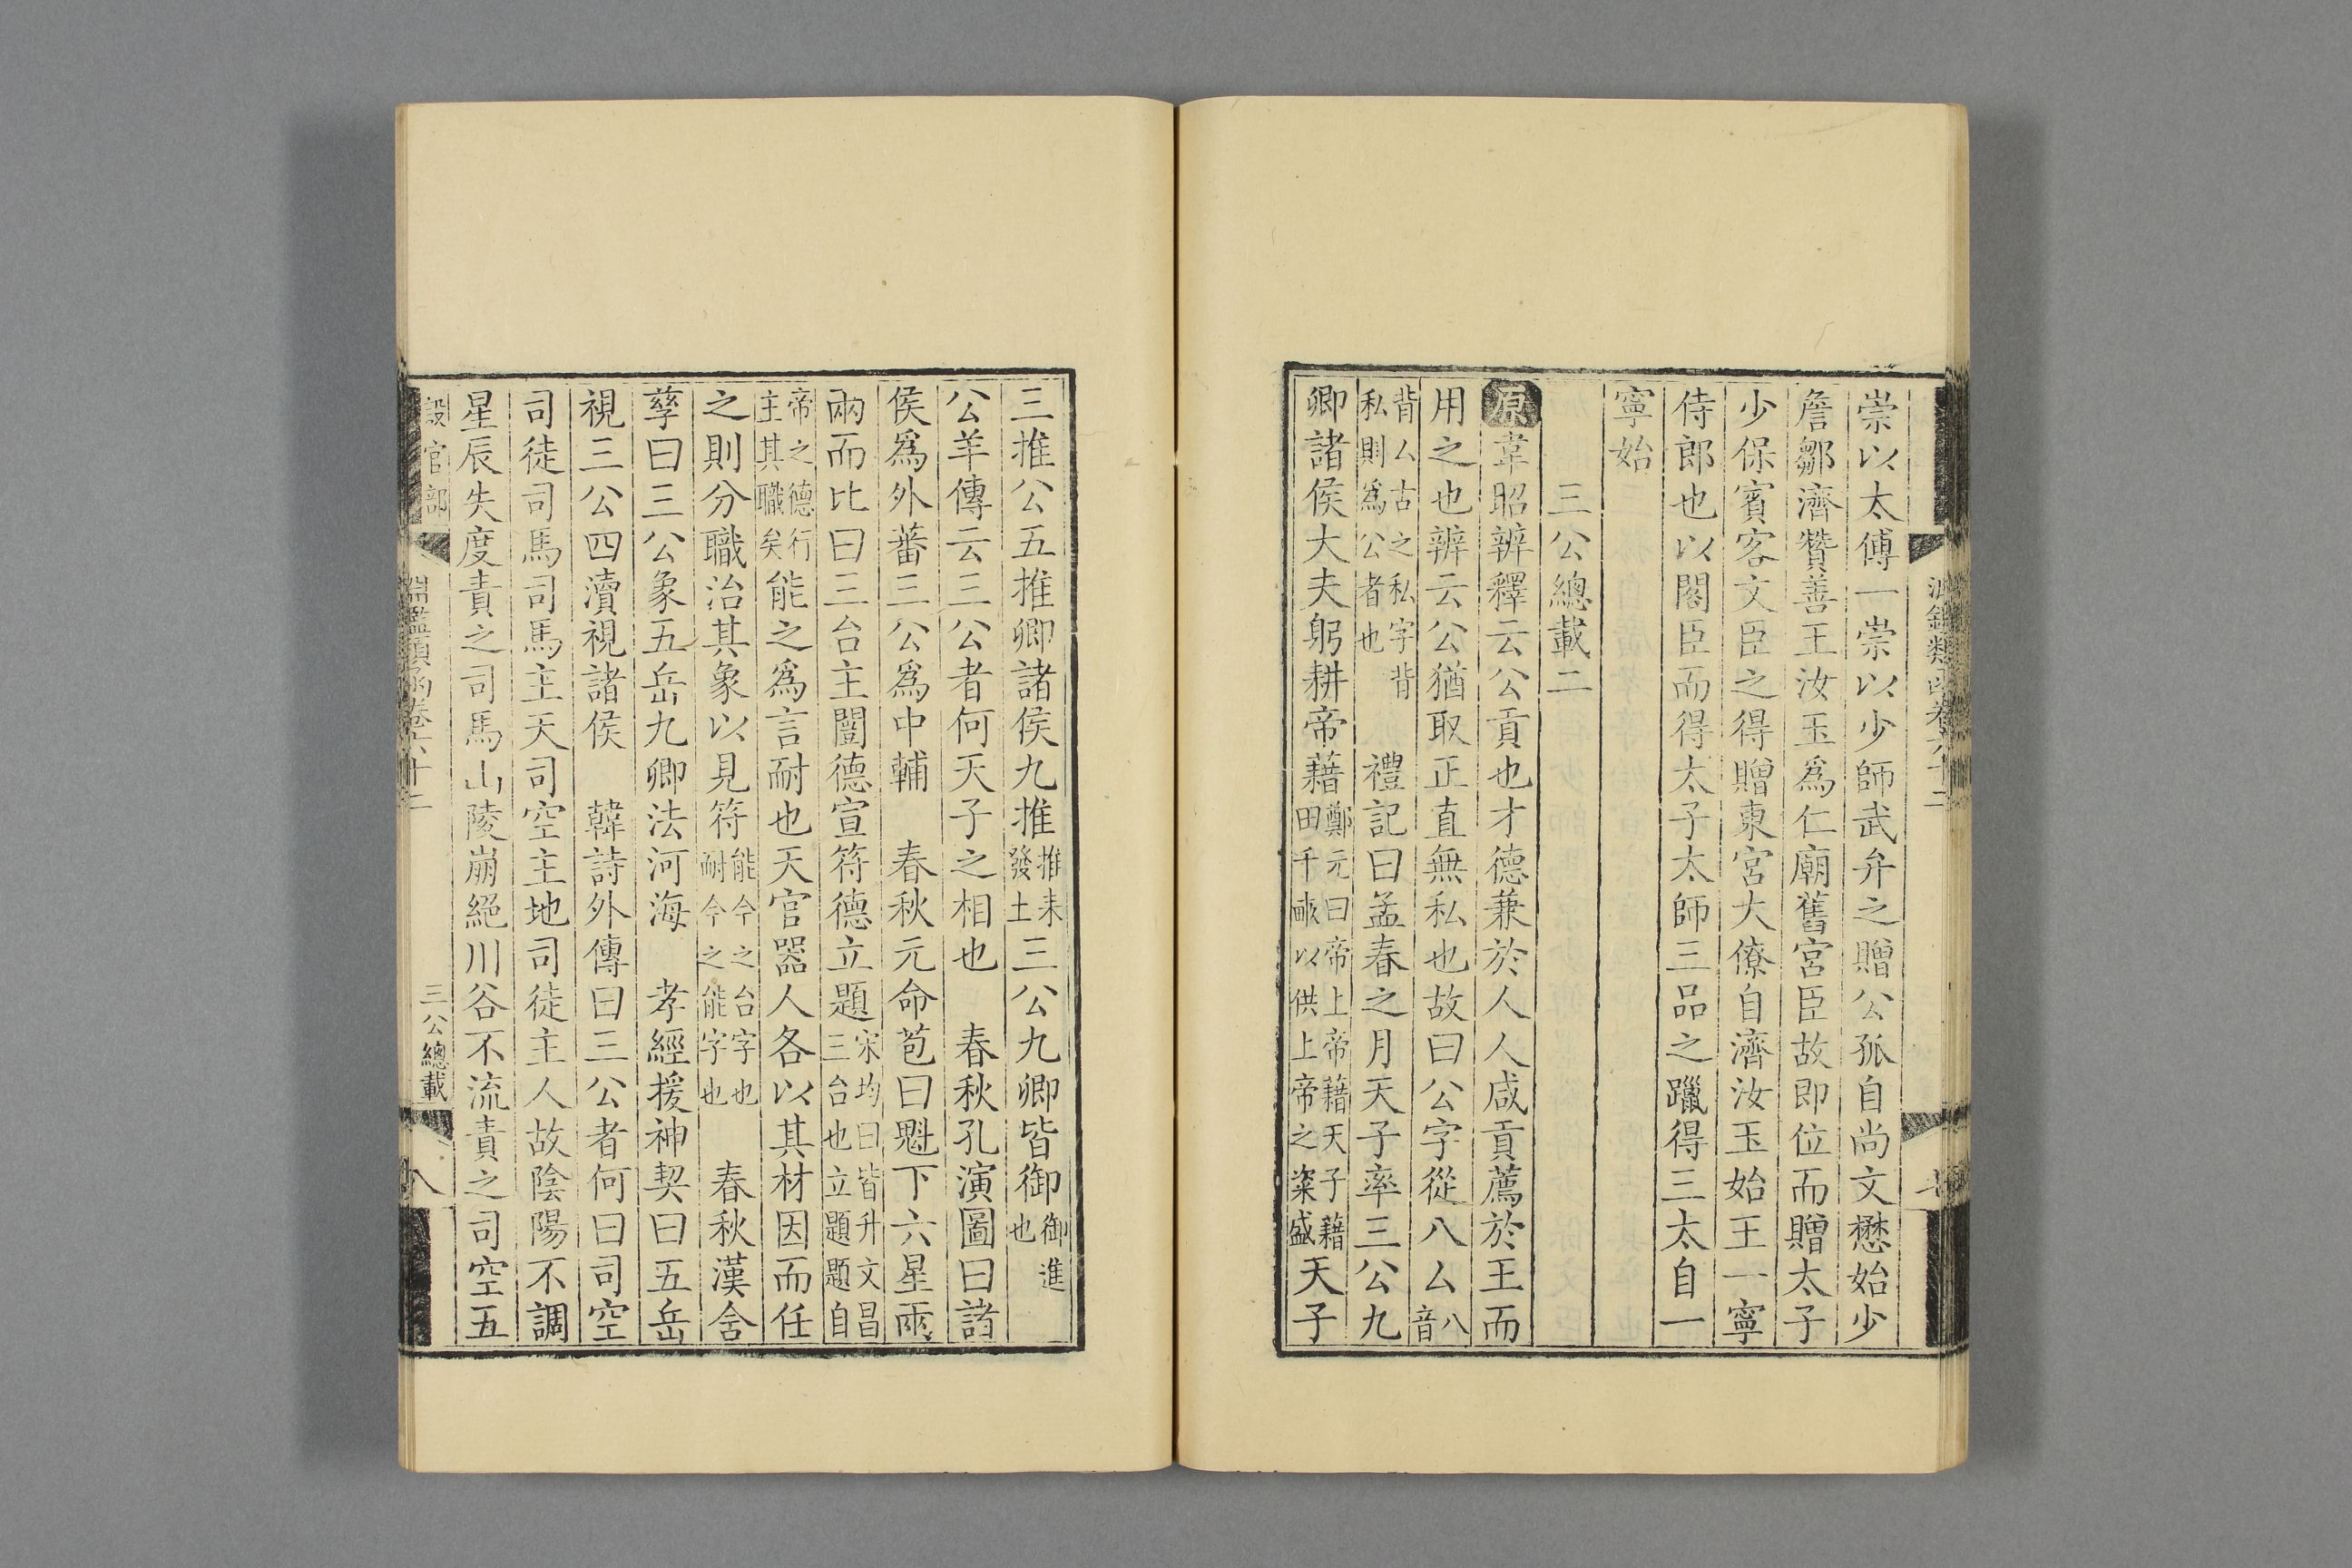 崇以太傅一崇以少師武弁之贈公孤自尚文懋始少
詹鄒濟贊善王汝玉爲仁廟舊宮臣故即位而贈太子
少保賓客文臣之得贈東宮大僚自濟汝玉始王一寧
侍郎也以閣臣而得太子太師三品之躐得三太自一
寧始
三公總載二
原韋昭辨釋云公貢也才德兼於人人咸貢薦於王而
用之也辨云公猶取正直無私也故曰公字從八厶八音
背厶古之私字背私則爲公者也 禮記曰孟春之月天子率三公九
卿諸侯大夫躬耕帝藉鄭元曰帝上帝藉天子藉田千畞以供上帝之粢盛天子
三推公五推卿諸侯九推推耒發土三公九卿皆御御進也
公羊傳云三公者何天子之相也 春秋孔演圖曰諸
侯爲外蕃三公爲中輔 春秋元命苞曰魁下六星兩
兩而比曰三台主闓德宣符德立題宋均曰皆升文昌三台也立題題自
帝之德行主其職矣能之爲言耐也天官器人各以其材因而任
之則分職治其象以見符能今之台字也耐今之能字也 春秋漢含
孳曰三公象五岳九卿法河海 孝經援神契曰五岳
視三公四瀆視諸侯 韓詩外傳曰三公者何曰司空
司徒司馬司馬主天司空主地司徒主人故陰陽不調
星辰失度責之司馬山陵崩絕川谷不流責之司空五
設官部 淵鑑類函卷六十二 三公總載 八